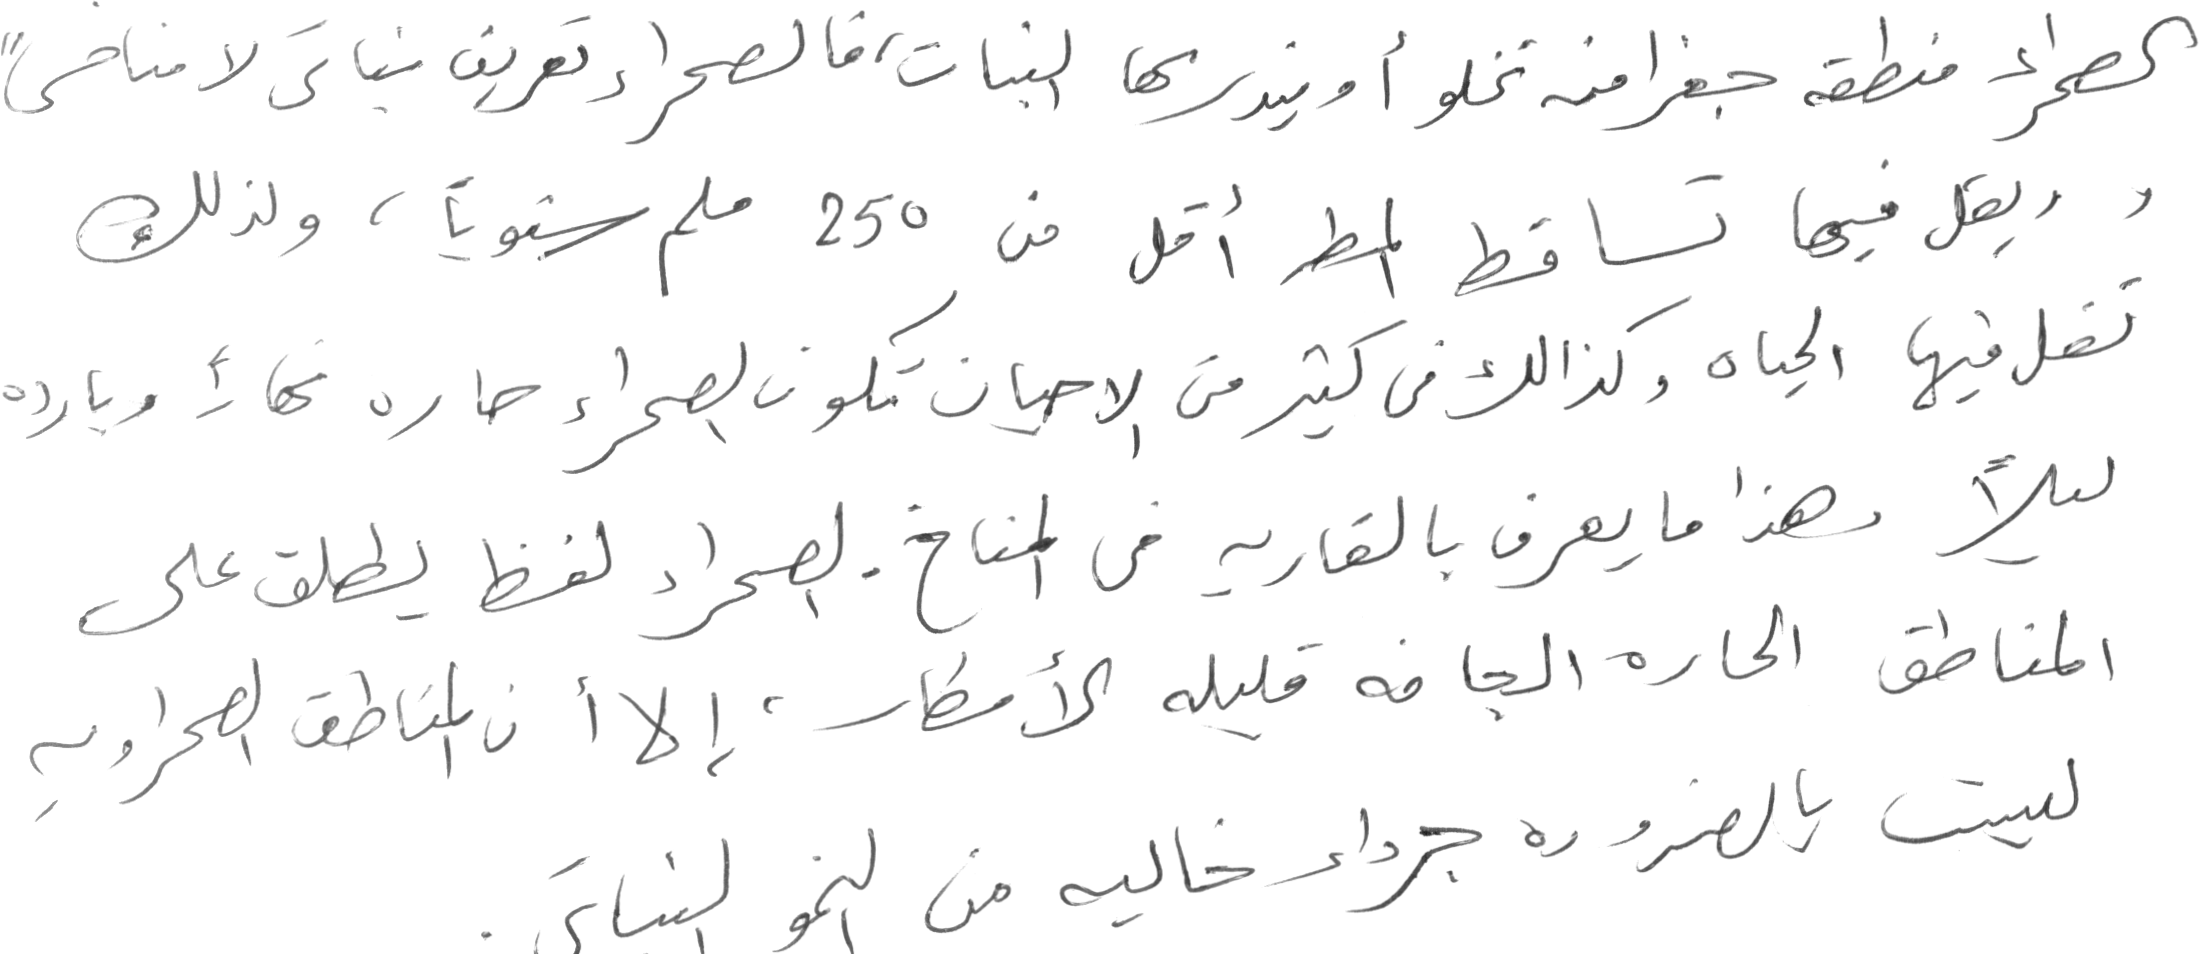 الصحراء منطقه جغرافيه تخلو أو يندر بها النبات، فالصحراء تعريف نباتي لا مناخي"
و ويقل فيها تساقط المطر أقل من 250 ملم سنوياً، ولذلك
تقل فيها الحياه وكذالك في كثير من الاحيان تكون الصحراء حاره نهاءً وبارده
ليلاً وهذا ما يعرف بالقاريه في المناخ. الصحراء لفظ يطلق على
المناطق الحاره الجافه قليله الأمطار، إلا أن المناطق الصحراويه
ليست بالضروره جرداء خاليه من النمو النباتي.